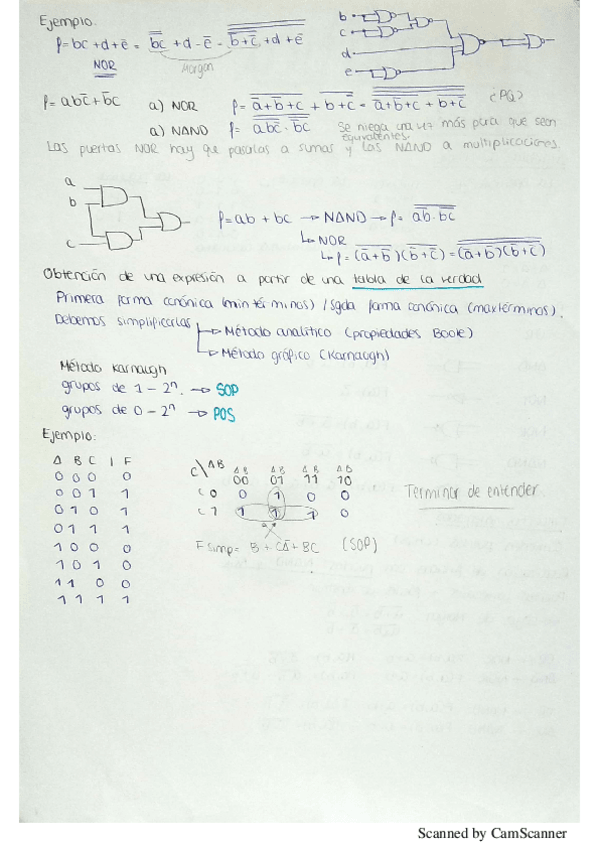 Ejemplo.
f = bc + d + ē = b̅c̅ + d · ē
NOR
Morgan
b
c
d
e
f = abc̄ + b̄c
a) NOR
a) NAND
¿PQ?
Se niega una vez más para que sean
equivalentes.
Las puertas NOR hay que pasarlas a sumas y las NAND a multiplicaciones
a
b
c
f = ab + bc → NAND → f =
NOR
Obtención de una expresión a partir de una tabla de la verdad
Primera forma canónica (mintérminos) / sgda forma canónica (maxtérminos).
Debemos simplificarlas
Método analítico (propiedades Boole)
Método gráfico (Karnaugh)
Método Karnaugh
grupos de 1 - 2ⁿ. → SOP
grupos de 0 - 2ⁿ → POS
Ejemplo:
A B C | F
0 0 0 0
0 0 1 1
0 1 0 1
0 1 1 1
1 0 0 0
1 0 1 0
1 1 0 0
1 1 1 1
C\AB
AB AB AB AB
00 01 11 10
C 0 0 1 0 0
C 1 1 1 1 0
F simp = B + CĀ + BC (SOP)
Terminar de entender
Scanned by CamScanner